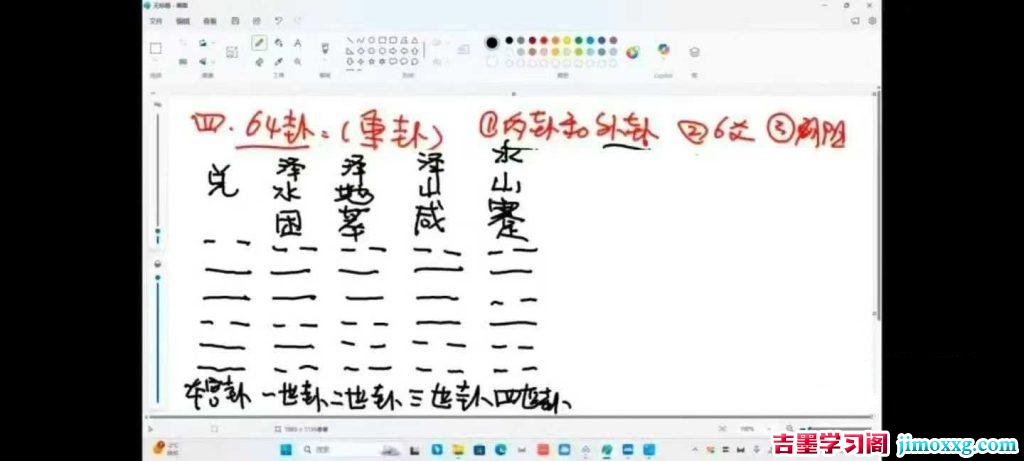 无标题 - 画图
文件 编辑 查看
四、64卦:(重卦) ①内卦和外卦 ②6爻 ③阴阳
兑 泽水困 泽地萃 泽山咸 水山蹇
本宫卦 一世卦 二世卦 三世卦 四世卦
搜索
吉墨学习阁 jimoxxg.com